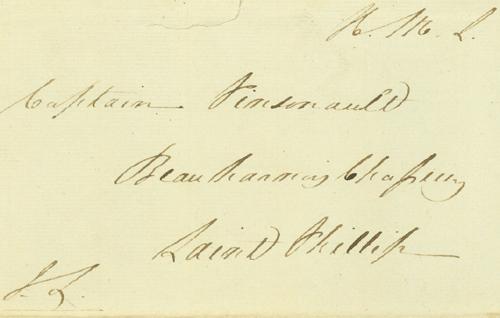 H. M. S.
Captain Pinsonault
Beauharnois Chasseurs
Saint Phillip
J. L.